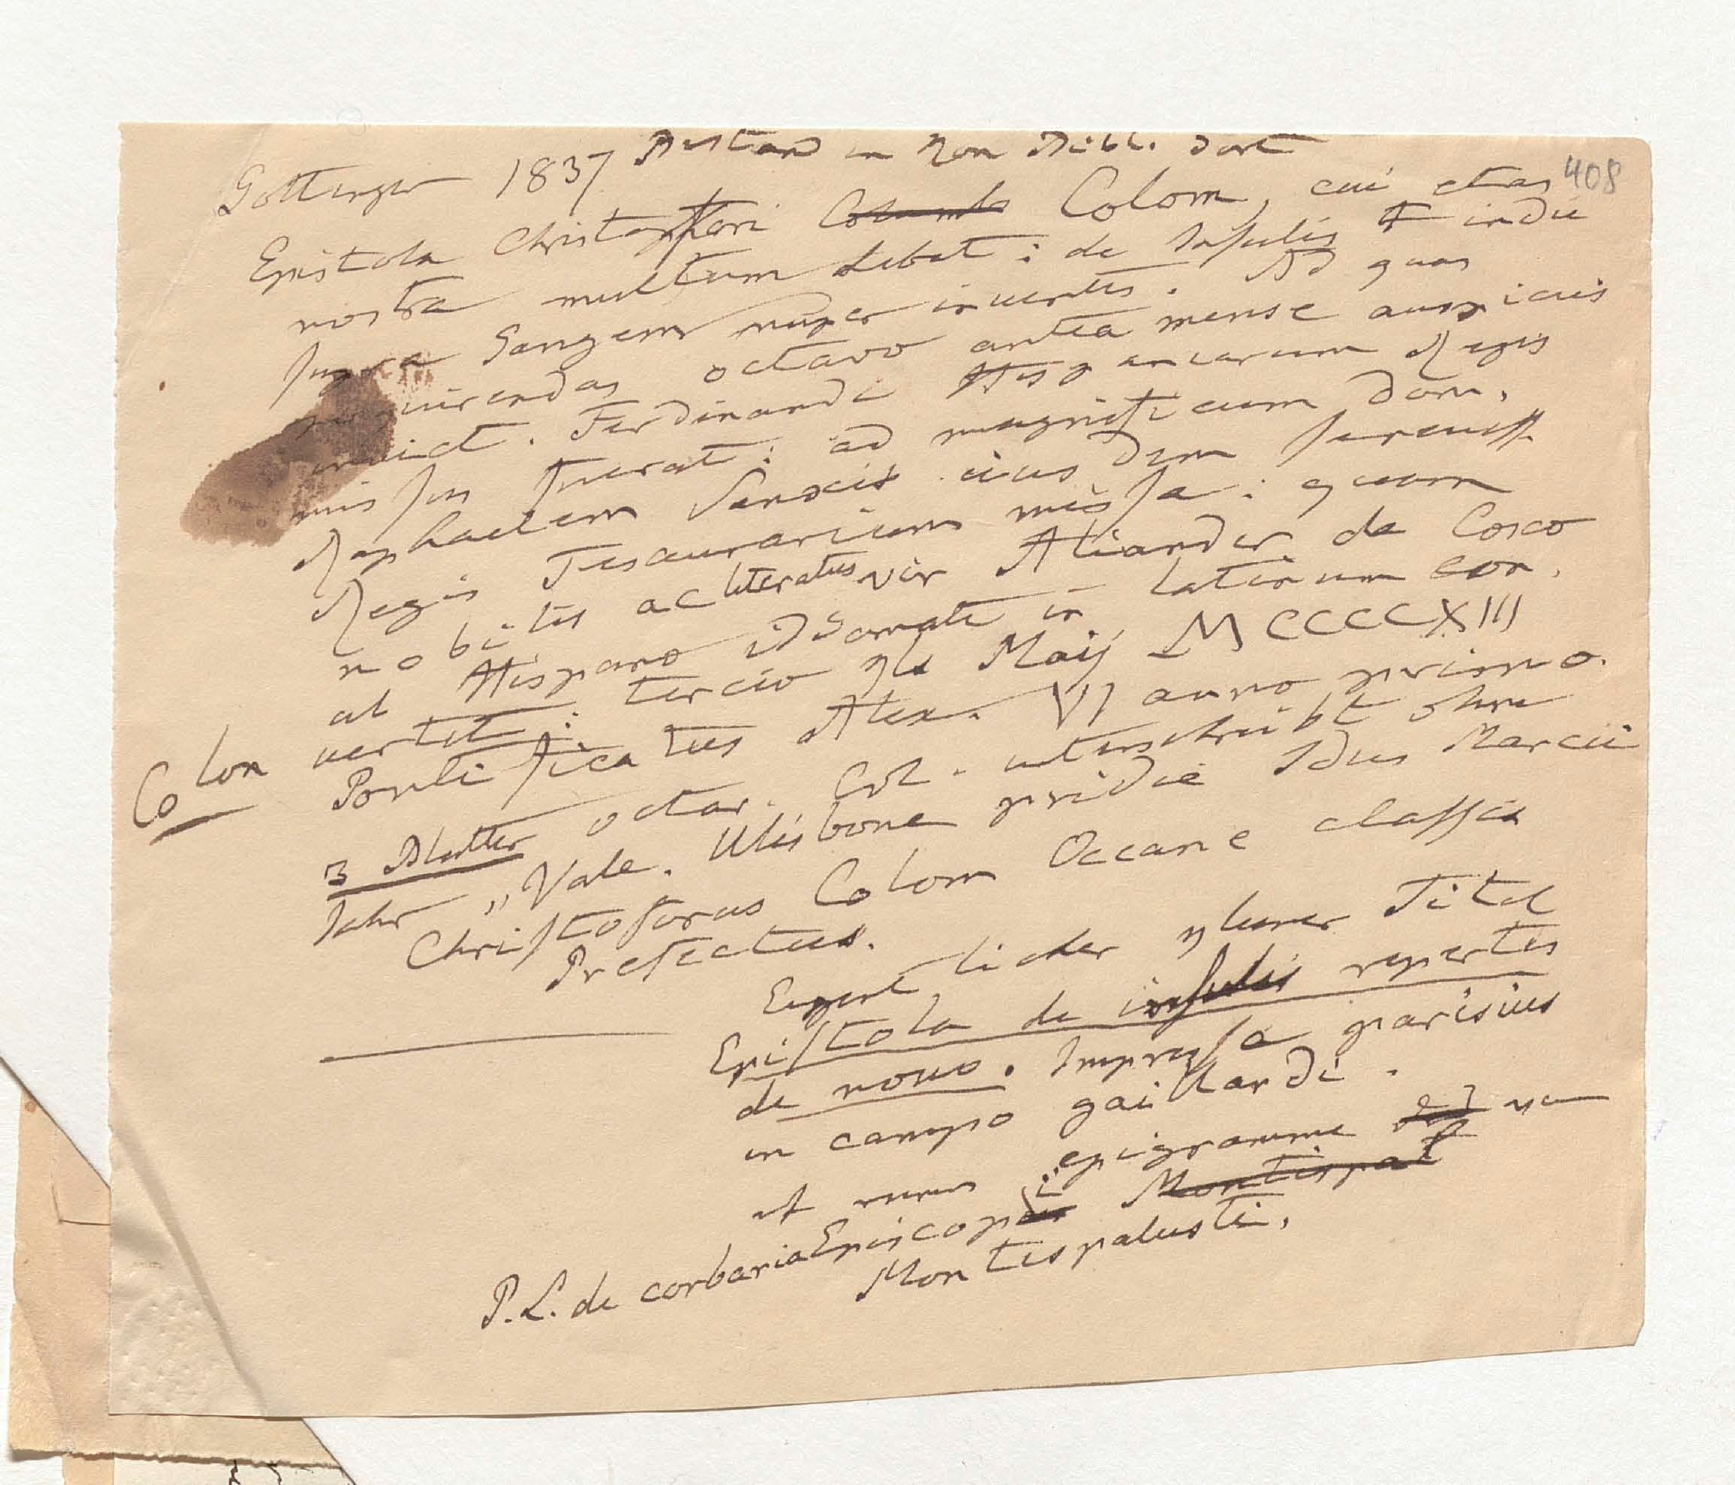 408
Göttingen 1837 Bestand in Kön Bibl. dort
Epistola Christophori Colom, cui etas
nostra multum debet: de Insulis indie
supra Gangem nuper inventis. Ad quas
perquirendas octavo antea mense auspiciis
invict. Ferdinandi Hispaniarum Regis
missus fuerat: ad magnificum Dom.
Raphaelem Sanxis eiusdem sereniss.
Regis Tesaurarium missa: quam
nobilis ac literatus vir Aliander de Cosco
ab Hispano idiomate in latinum con.
vertit: tercio Kls Maij MCCCCXIII
Pontificatus Alex. VI anno primo.
Colon
3 Blätter octav. Col. unterschreibt ohne
Jahr „Vale. Ulisbone pridie Idus Marcii
Christoforus Colom Oceane classis
Prefectus.
Eigentlicher Titel
Epistola de insulis repertis
de novo. Impressa parisius
in campo gaillardi.
epigramme
P. L. de corbaria Episcopi
Montispalusti.